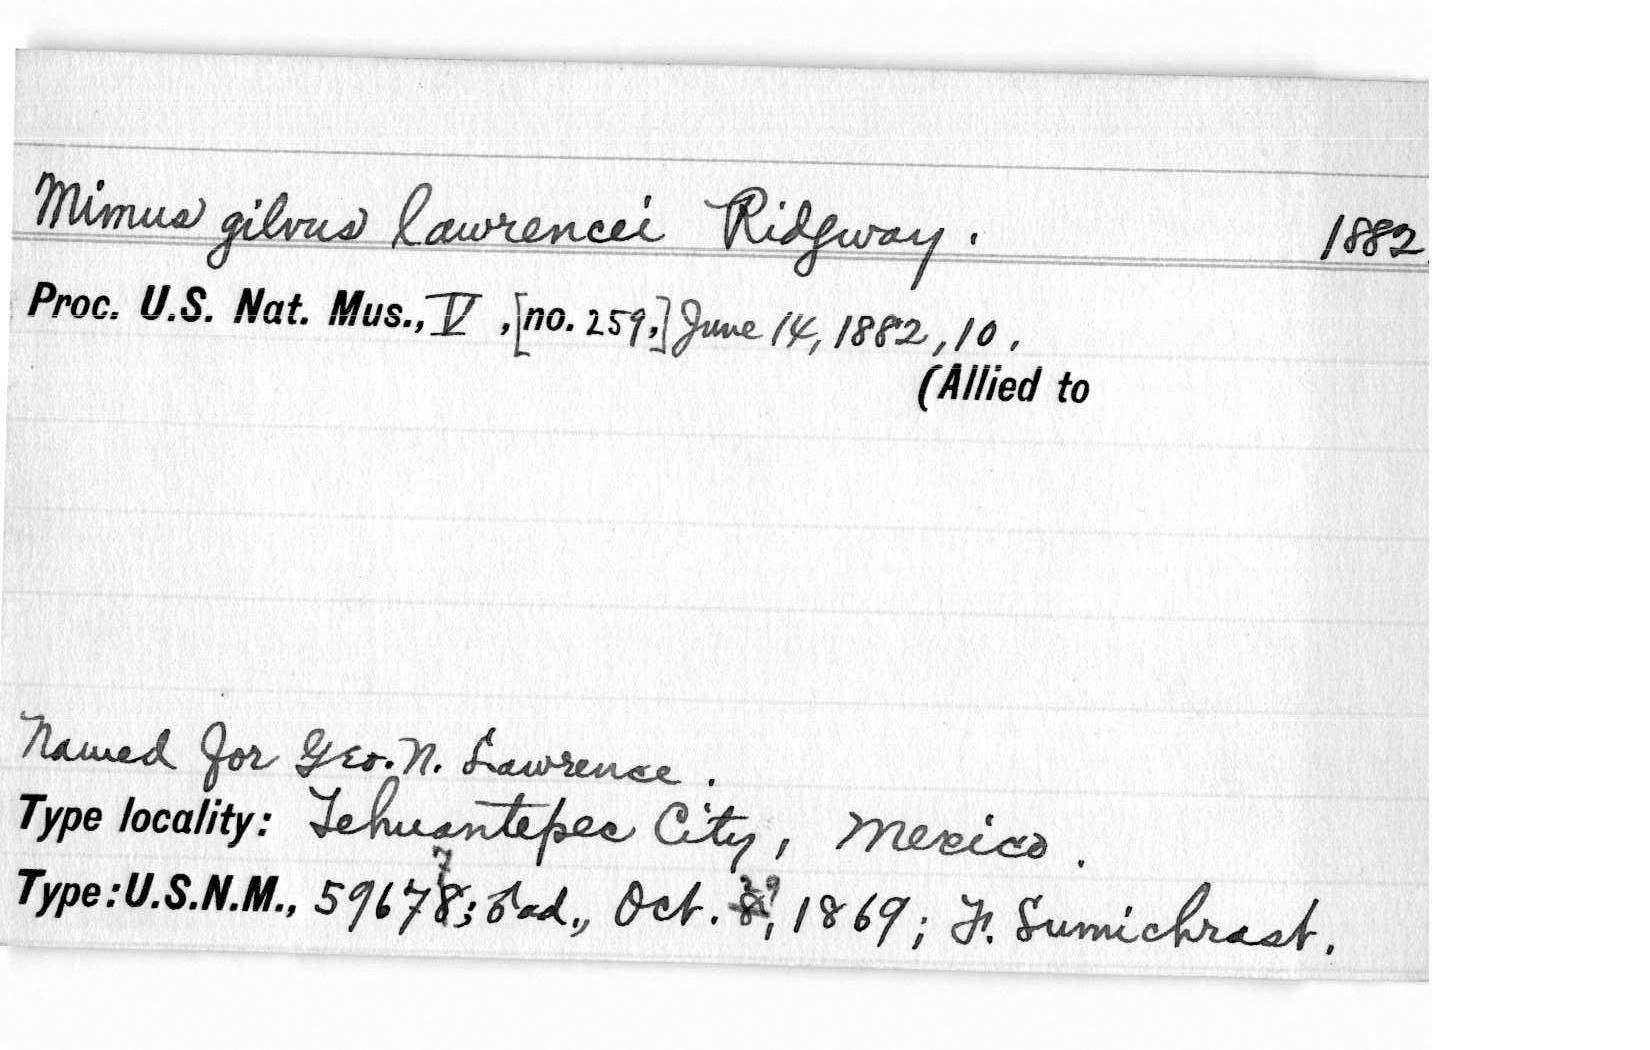 Mimus gilvus lawrencei Ridgway. 1882.
Proc. U.S. Nat. Mus., V, [no. 259,] June 14, 1882, 10.
(Allied to
Named for Geo. N. Lawrence.
Type locality: Tehuantepec City, Mexico.
7
Type: U.S.N.M., 59678; ♂ ad., Oct. 1869; F. Sumichrast.